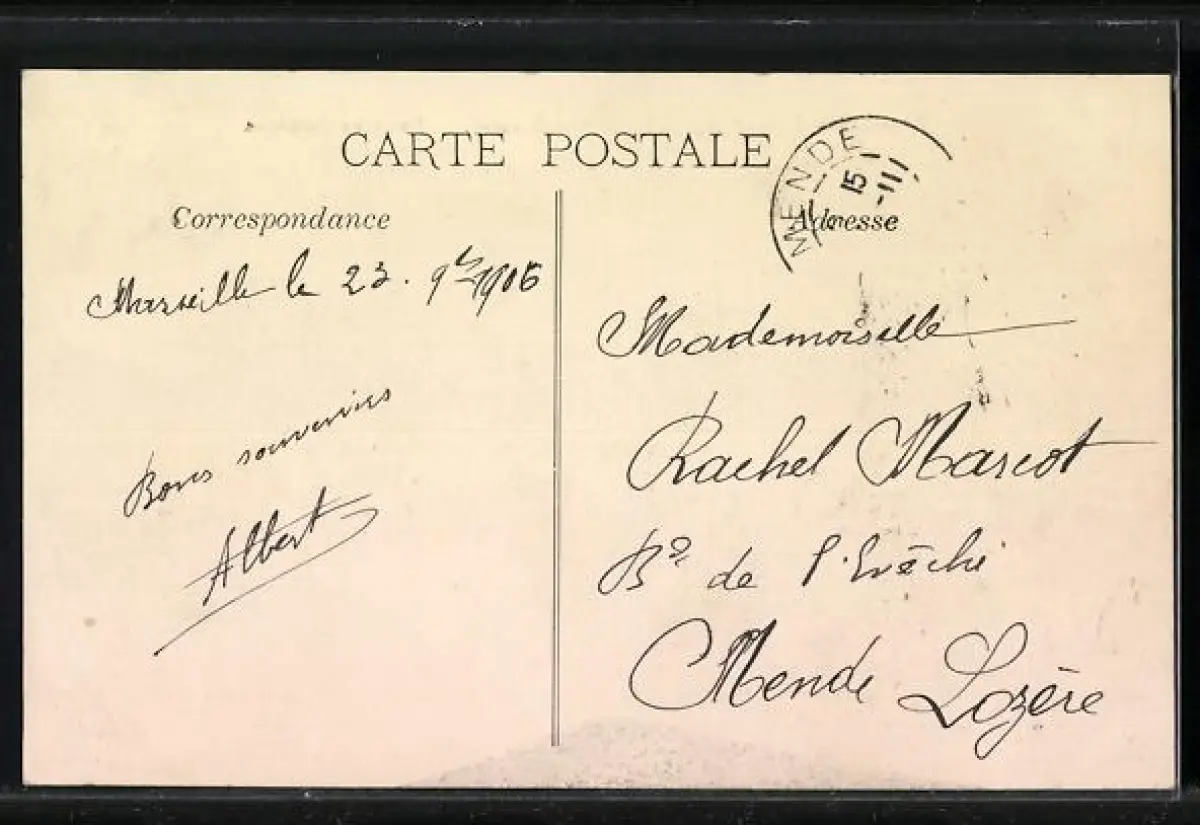 CARTE POSTALE
Correspondance
Marseille le 23. 9bre 1906
Bons souvenirs
Albert
MENDE
15
Adresse
Mademoiselle
Rachel Mascot
Bd de l'Evêché
Mende Lozère